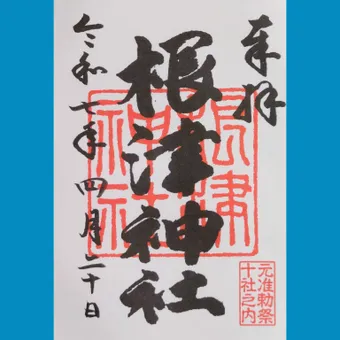 奉拝
根津神社
根津
神社
令和七年四月二十日
元准勅祭
十社之内